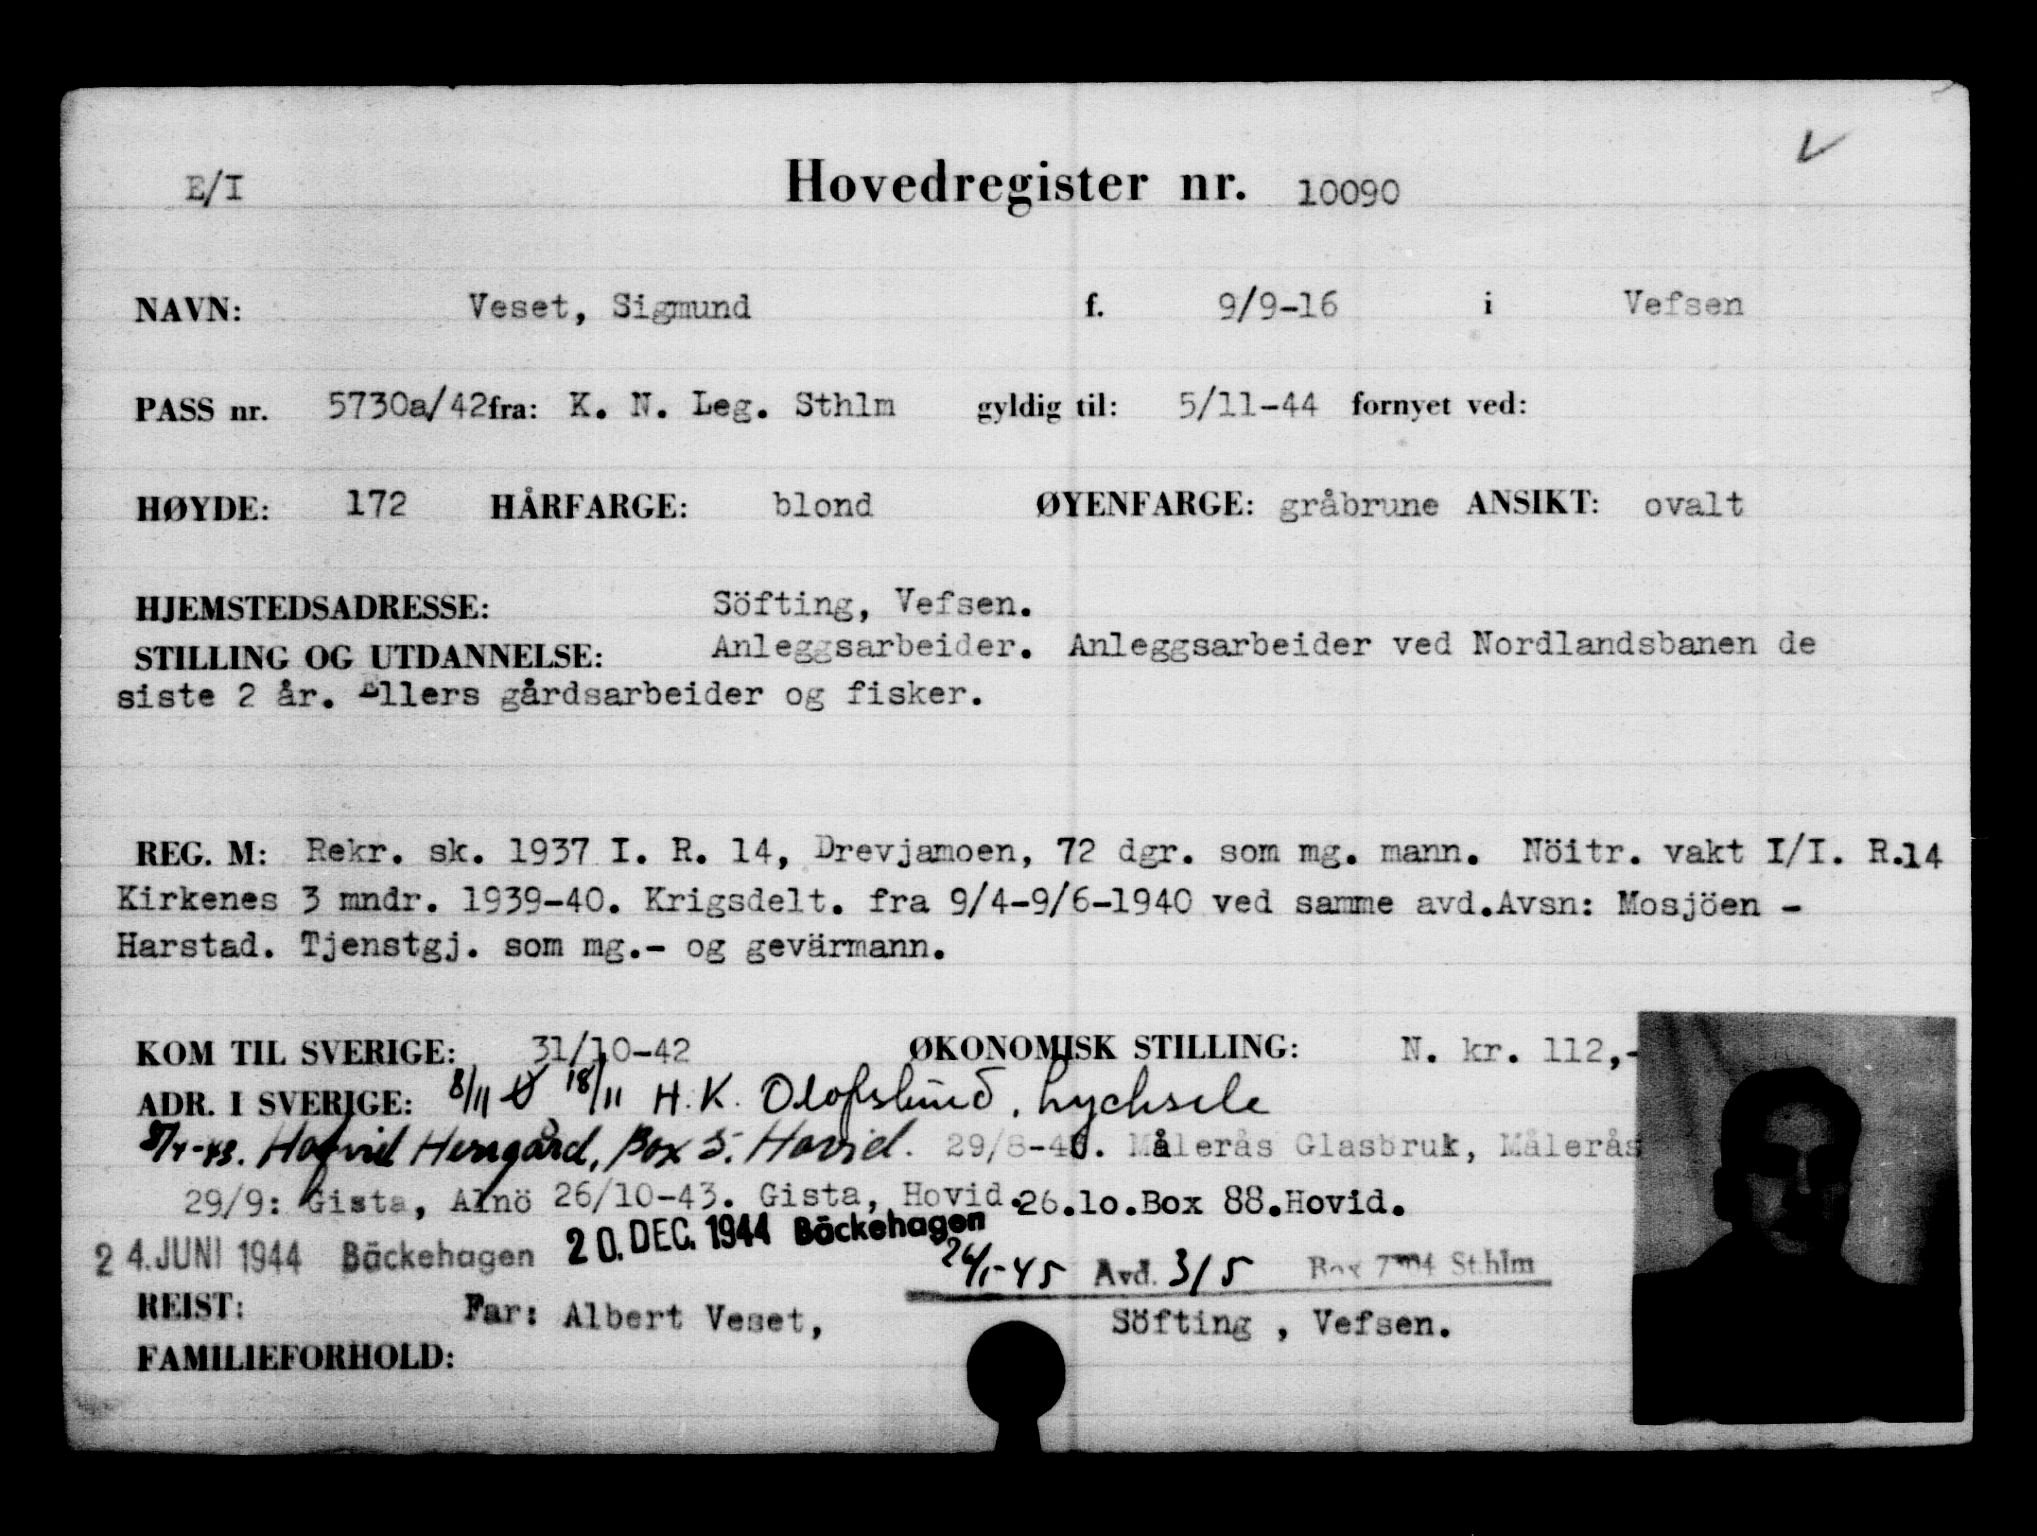 E/I Hovedregister nr. 10090
NAVN: Veset, Sigmund f. 9/9-16 i Vefsen
PASS nr. 5730a/42 fra: K. N. Leg. Sthlm gyldig til: 5/11-44 fornyet ved:
HØYDE: 172 HÅRFARGE: blond ØYENFARGE: gråbrune ANSIKT: ovalt
HJEMSTEDSADRESSE: Söfting, Vefsen.
STILLING OG UTDANNELSE: Anleggsarbeider. Anleggsarbeider ved Nordlandsbanen de
siste 2 år. Ellers gårdsarbeider og fisker.
REG. M: Rekr. sk. 1937 I. R. 14, Drevjamoen, 72 dgr. som mg. mann. Nöitr. vakt I/I. R.14
Kirkenes 3 mndr. 1939-40. Krigsdelt. fra 9/4-9/6-1940 ved samme avd.Avsn: Mosjöen -
Harstad. Tjenstgj. som mg.- og gevärmann.
KOM TIL SVERIGE: 31/10-42 ØKONOMISK STILLING: N. kr. 112,-
ADR. I SVERIGE: 8/11 18/11 H.K. Olofslund, Lycksele
Herrgård, Box 5. Hovid. Målerås Glasbruk, Målerås
29/9: Gista, Alnö 26/10-43. Gista, Hovid. 26.10.Box 88.Hovid.
24. JUNI 1944 Bäckehagen 20. DEC. 1944 Bäckehagen
26/1-45 Avd. 3/5 Box Sthlm
REIST: Far: Albert Veset, Söfting , Vefsen.
FAMILIEFORHOLD: